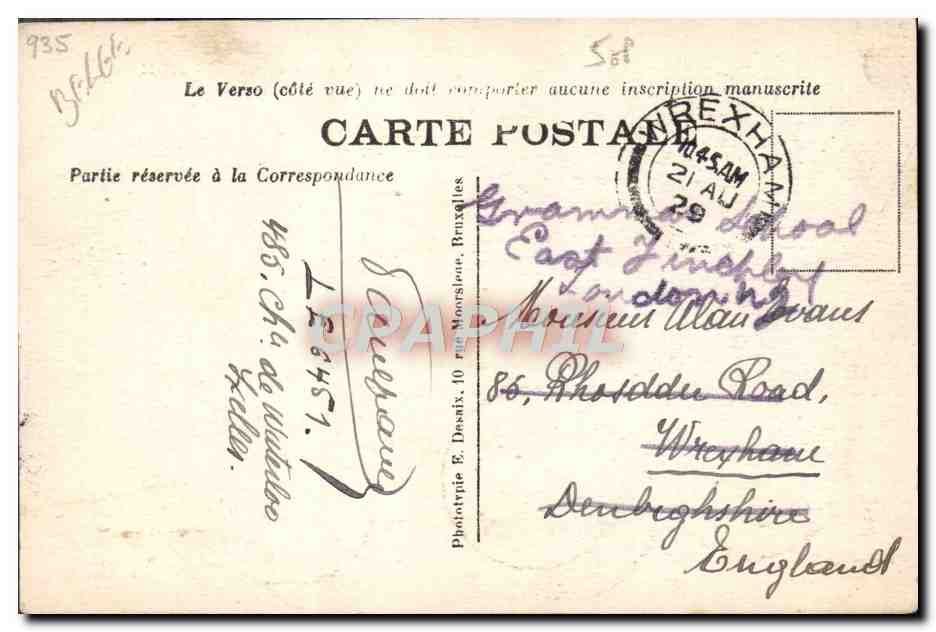 935
BELGE.
Le Verso (côté vue) ne doit comporter aucune inscription manuscrite
CARTE POSTALE
Partie réservée à la Correspondance
WREXHAM
10.45 AM
21 AU
29
Grammar School
East Finchley
London N2
Monsieur Alan Evans
86, Rhosddu Road,
Wrexham
Denbighshire
England
Phototypie E. Desaix, 10 rue Moorslede, Bruxelles
L E 6451.
485. Chée de Waterloo
Ixelles.
CPAPHIL